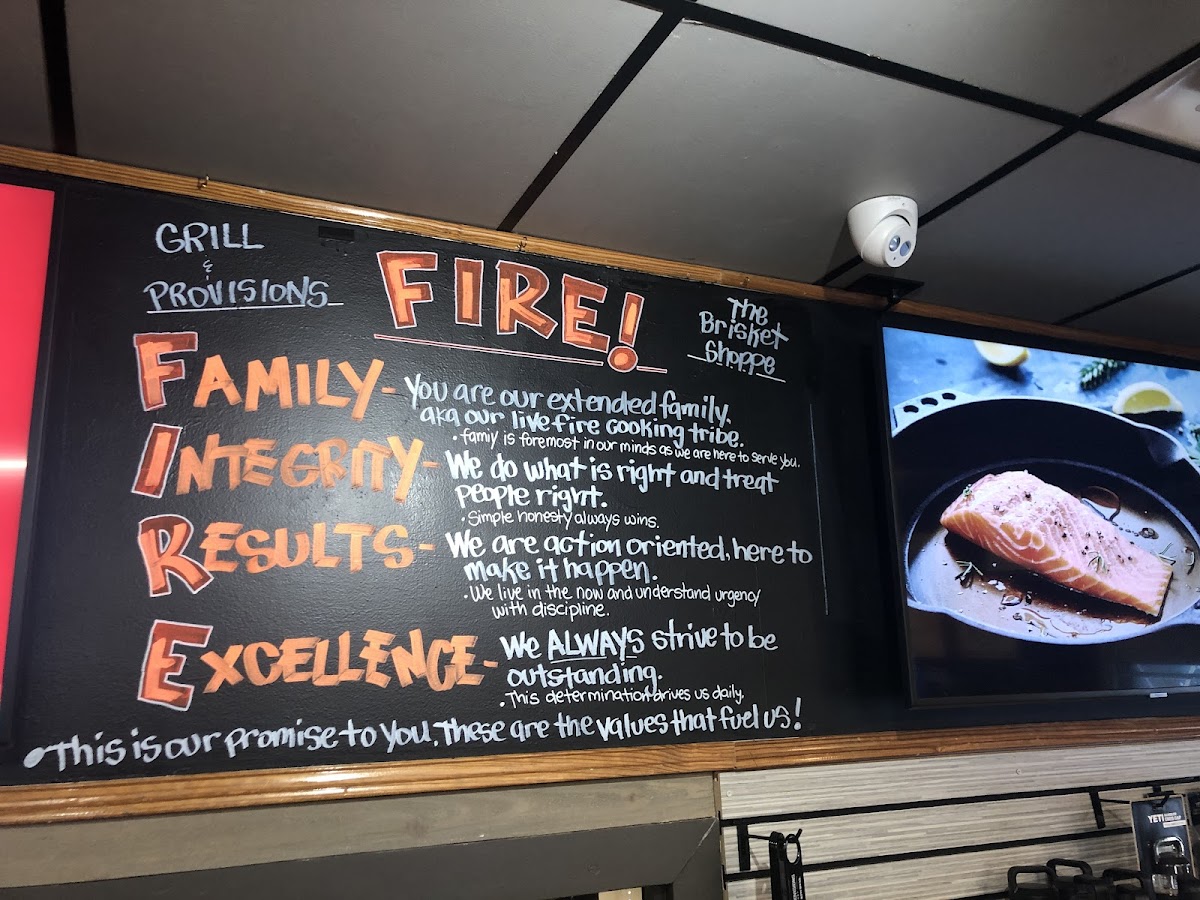 GRILL
&
PROVISIONS
FIRE!
The
Brisket
Shoppe
FAMILY- You are our extended family,
aka our live fire cooking tribe.
• family is foremost in our minds as we are here to serve you.
INTEGRITY- We do what is right and treat
people right.
• Simple honesty always wins.
RESULTS- We are action oriented, here to
make it happen.
• We live in the now and understand urgency
with discipline.
EXCELLENCE- We ALWAYS strive to be
outstanding.
• This determination drives us daily.
• This is our promise to you. These are the values that fuel us!
YETI